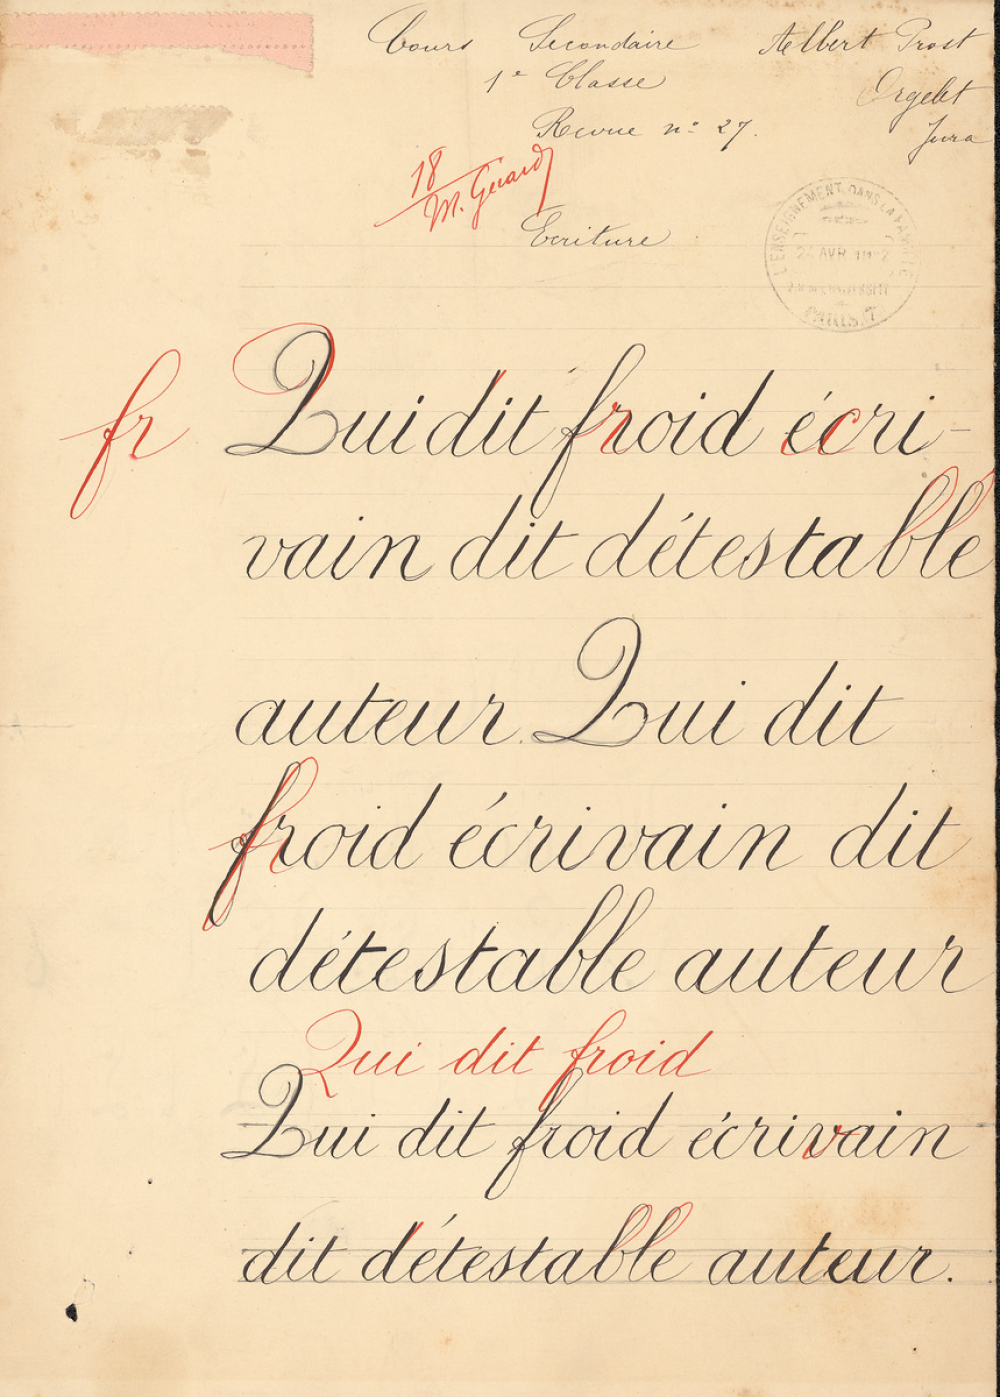 Cours Secondaire Albert Prost
1e Classe Orgelet
Revue nº 27. Jura
18
M. Girard
Ecriture
L'ENSEIGNEMENT DANS LA FAMILLE
AVR
PARIS
fr Qui dit froid écri-
vain dit détestable
auteur. Qui dit
froid écrivain dit
détestable auteur
Qui dit froid
Qui dit froid écrivain
dit détestable auteur.